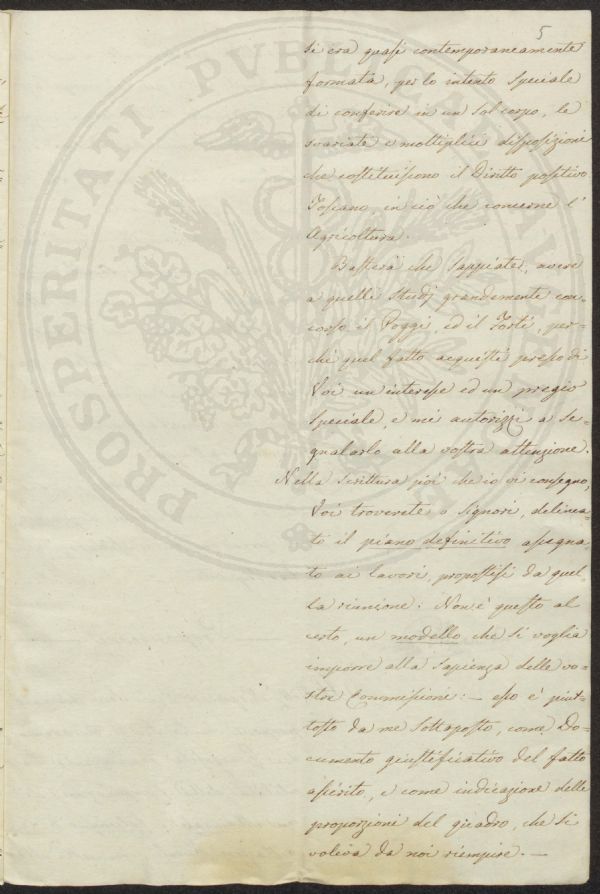 5
si era quasi contemporaneamente
formata, per lo intento speciale
di conferire in un sol corpo, le
svariate e moltiplici disposizioni
che costituiscono il Diritto positivo
Toscano, in ciò che concerne l'
Agricoltura.
Basterà che sappiate, avere
a quelli studj grandemente con=
corso il Poggi, ed il Forti, per=
chè quel fatto acquisti presso di
Voi un interesse ed un pregio
speciale, e mi autorizzi a se=
gnalarlo alla vostra attenzione.
Nella scrittura poi che io vi consegno,
Voi troverete o Signori, delinea=
to il piano definitivo assegna=
to ai lavori, propostisi da quel=
la riunione. Non è questo al
certo, un modello che si voglia
imporre alla sapienza delle vo=
stre Commissioni: — esso è piut=
tosto da me sottoposto, come Do=
cumento giustificativo del fatto
asserito, e come indicazione delle
proporzioni del quadro, che si
voleva da noi riempire. —
PROSPERITATI PVBLICAE